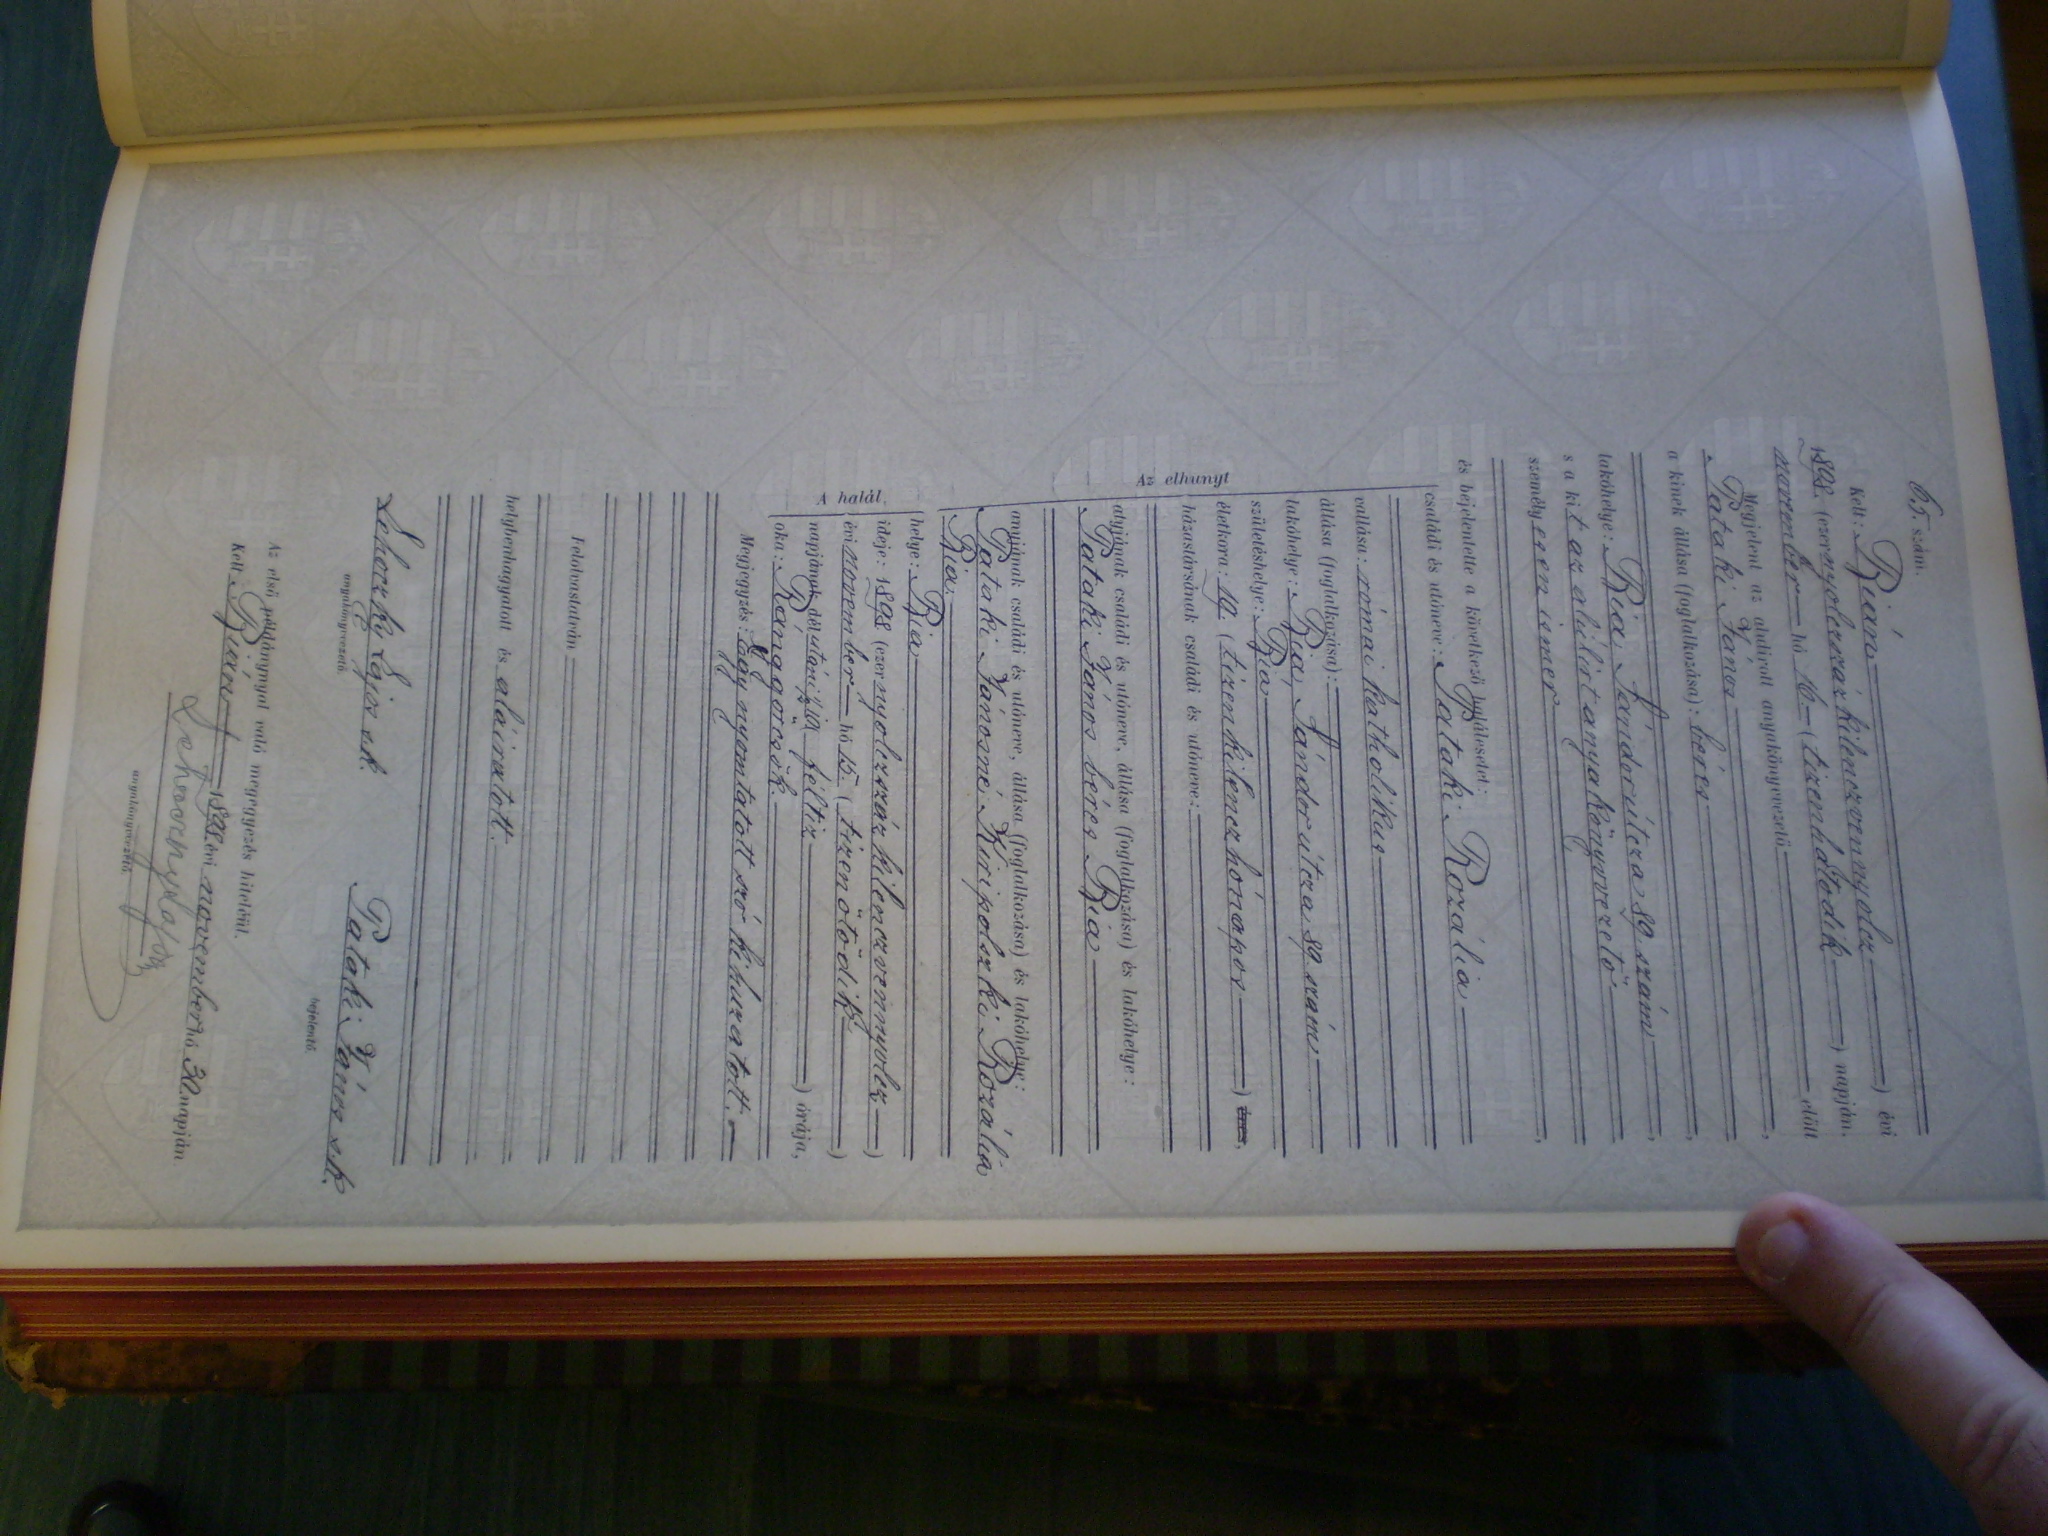 65. szám.
Kelt: Bián — 1898. (ezernyolczszáz kilenczvennyolcz —) évi
november — hó 16 — (tizenhatodik —) napján.
Megjelent az alulirott anyakönyvvezető — előtt
Pataki János —,
a kinek állása (foglalkozása): béres —,
lakóhelye: Bia, Sándorútcza 89. szám —,
s a kit az alólirt anyakönyvvezető —
személyesen ismer —,
és bejelentette a következő halálesetet:
Az elhunyt
családi és utóneve: Pataki Rozália —
vallása: római katholikus —
állása (foglalkozása): —
lakóhelye: Bia, Sándor útcza 89. szám —
születéshelye: Bia —
életkora: 19. (tizenkilencz hónapos —) éves,
házastársának családi és utóneve: —
atyjának családi és utóneve, állása (foglalkozása) és lakóhelye:
Pataki János béres Bia —
anyjának családi és utóneve, állása (foglalkozása) és lakóhelye:
Pataki Jánosné, Kiripolszki Rozália
Bia.
A halál
helye: Bia —
ideje: 1898 (ezernyolczszáz kilenczvennyolcz —)
évi november — hó 15. (tizenötödik —)
napjának délutáni féltíz —) órája,
oka: Rángógörcsök. —
Megjegyzés: Egy nyomtatott szó kihúzatott. —
Felolvastatván —
helybenhagyatott és aláíratott. —
Lehoczki Lajos sk.
anyakönyvvezető.
Pataki János s.k.
bejelentő.
Az első példánynyal való megegyezés hiteléül.
Kelt Bián — 1898 évi november hó 30 napján
anyakönyvvezető.